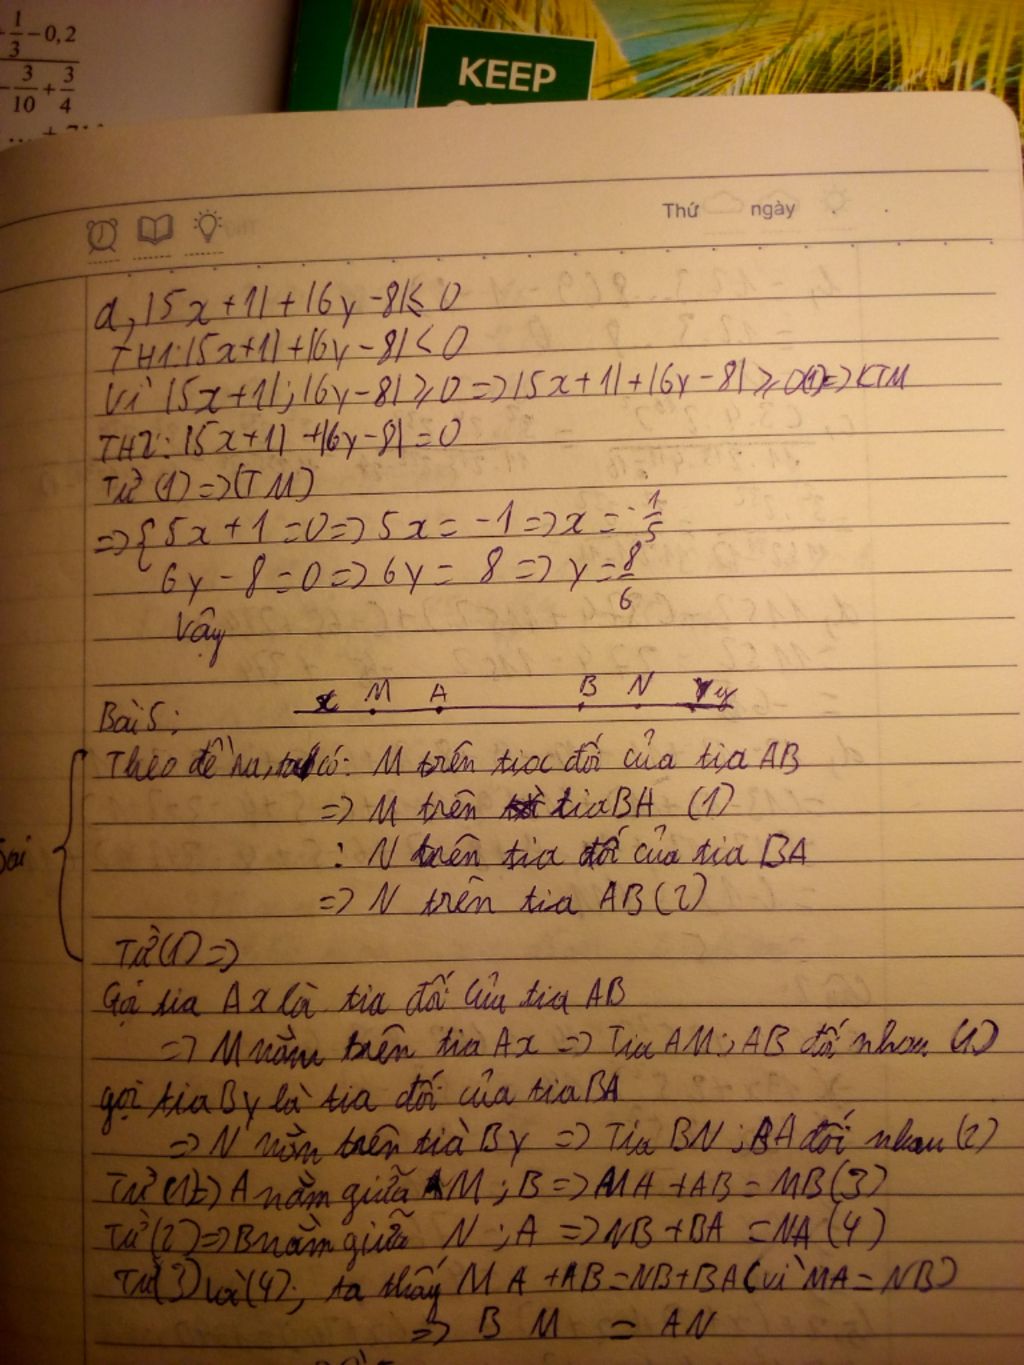 + 1/3 - 0,2
- 3/10 + 3/4
KEEP
Thứ ngày
d, |5x + 1| + |6y - 8| ≤ 0
TH1: |5x+1| + |6y - 8| < 0
Vì |5x+1|; |6y-8| ≥ 0 => |5x+1| + |6y-8| ≥ 0(1) => KTM
TH2: |5x+1| + |6y-8| = 0
Từ (1) => (TM)
=> { 5x + 1 = 0 => 5x = -1 => x = -1/5
6y - 8 = 0 => 6y = 8 => y = 8/6
Vậy
x M A B N y
Bài 5:
Theo đề ra, ta có: M trên tia đối của tia AB
=> M trên tia BA (1)
: N trên tia đối của tia BA
=> N trên tia AB (2)
Sai
Từ (1) =>
Gọi tia Ax là tia đối của tia AB
=> M nằm trên tia Ax => Tia AM; AB đối nhau (1)
gọi tia By là tia đối của tia BA
=> N nằm trên tia By => Tia BN; BA đối nhau (2)
Từ (1) => A nằm giữa M; B => MA + AB = MB (3)
Từ (2) => B nằm giữa N; A => NB + BA = NA (4)
Từ (3) và (4), ta thấy MA + AB = NB + BA (vì MA = NB)
=> BM = AN